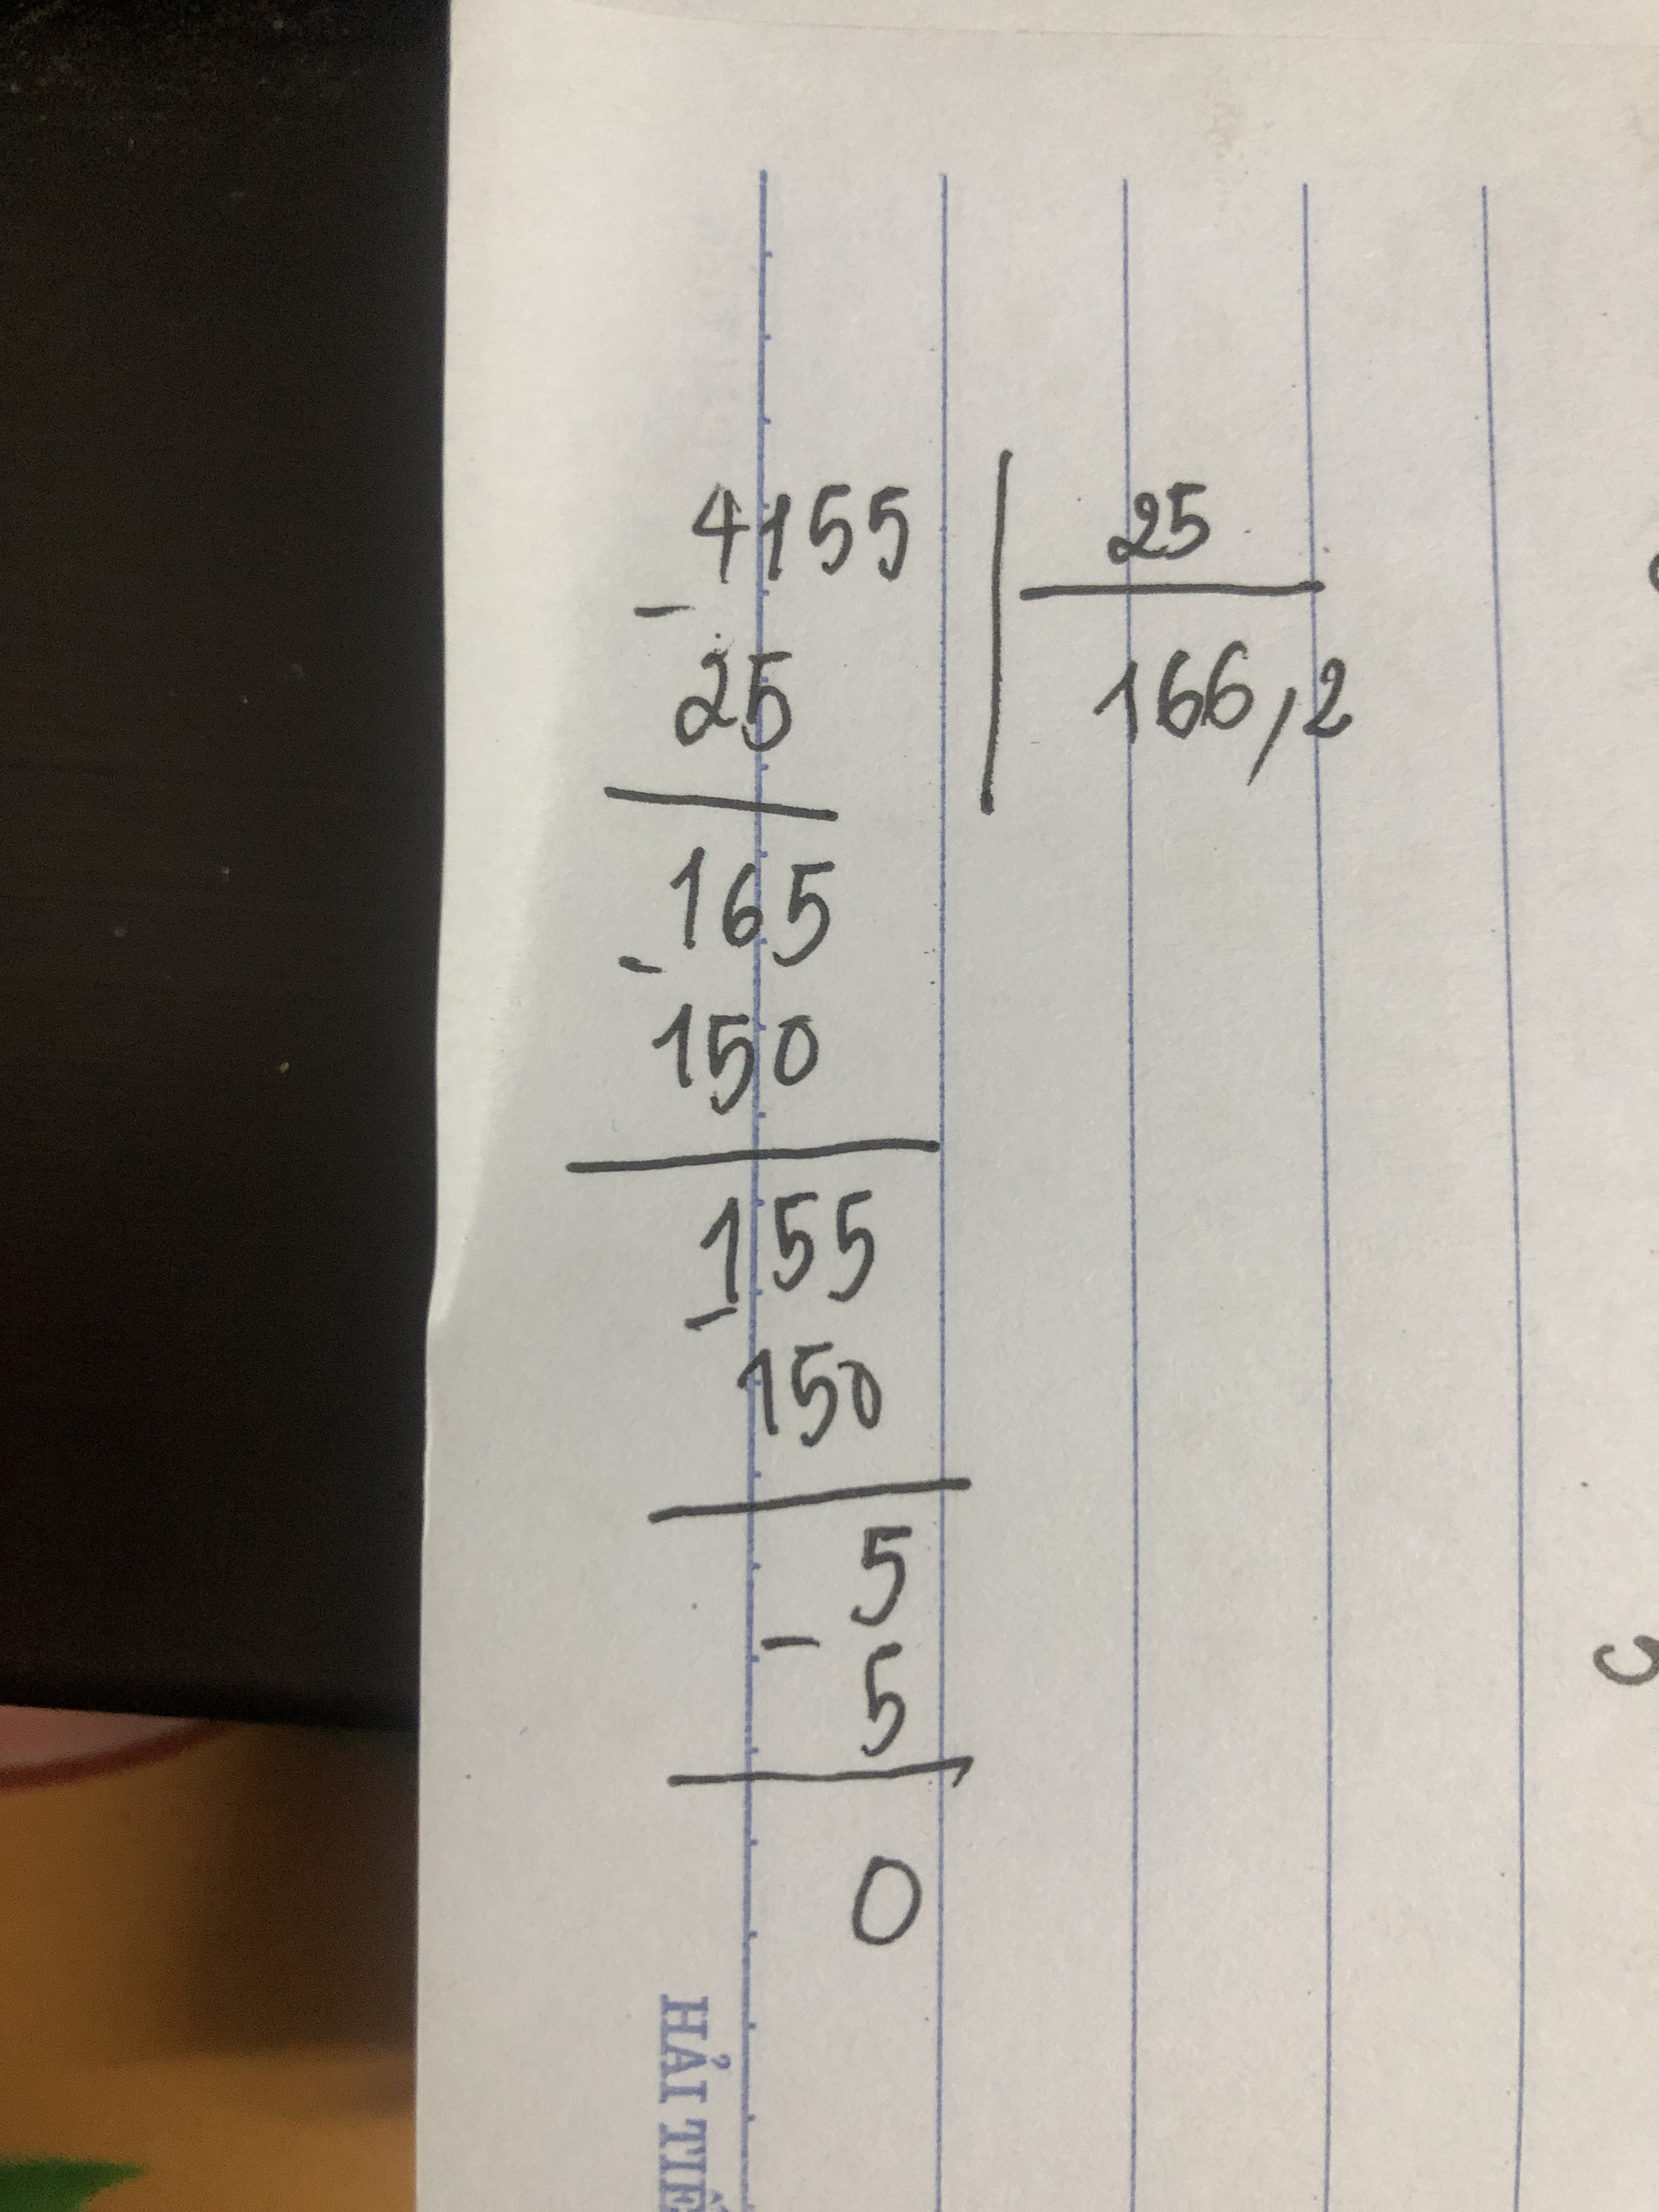 4155 | 25
−
25 166,2
165
−
150
155
−
150
5
−
5
0
HẢI TIẾ